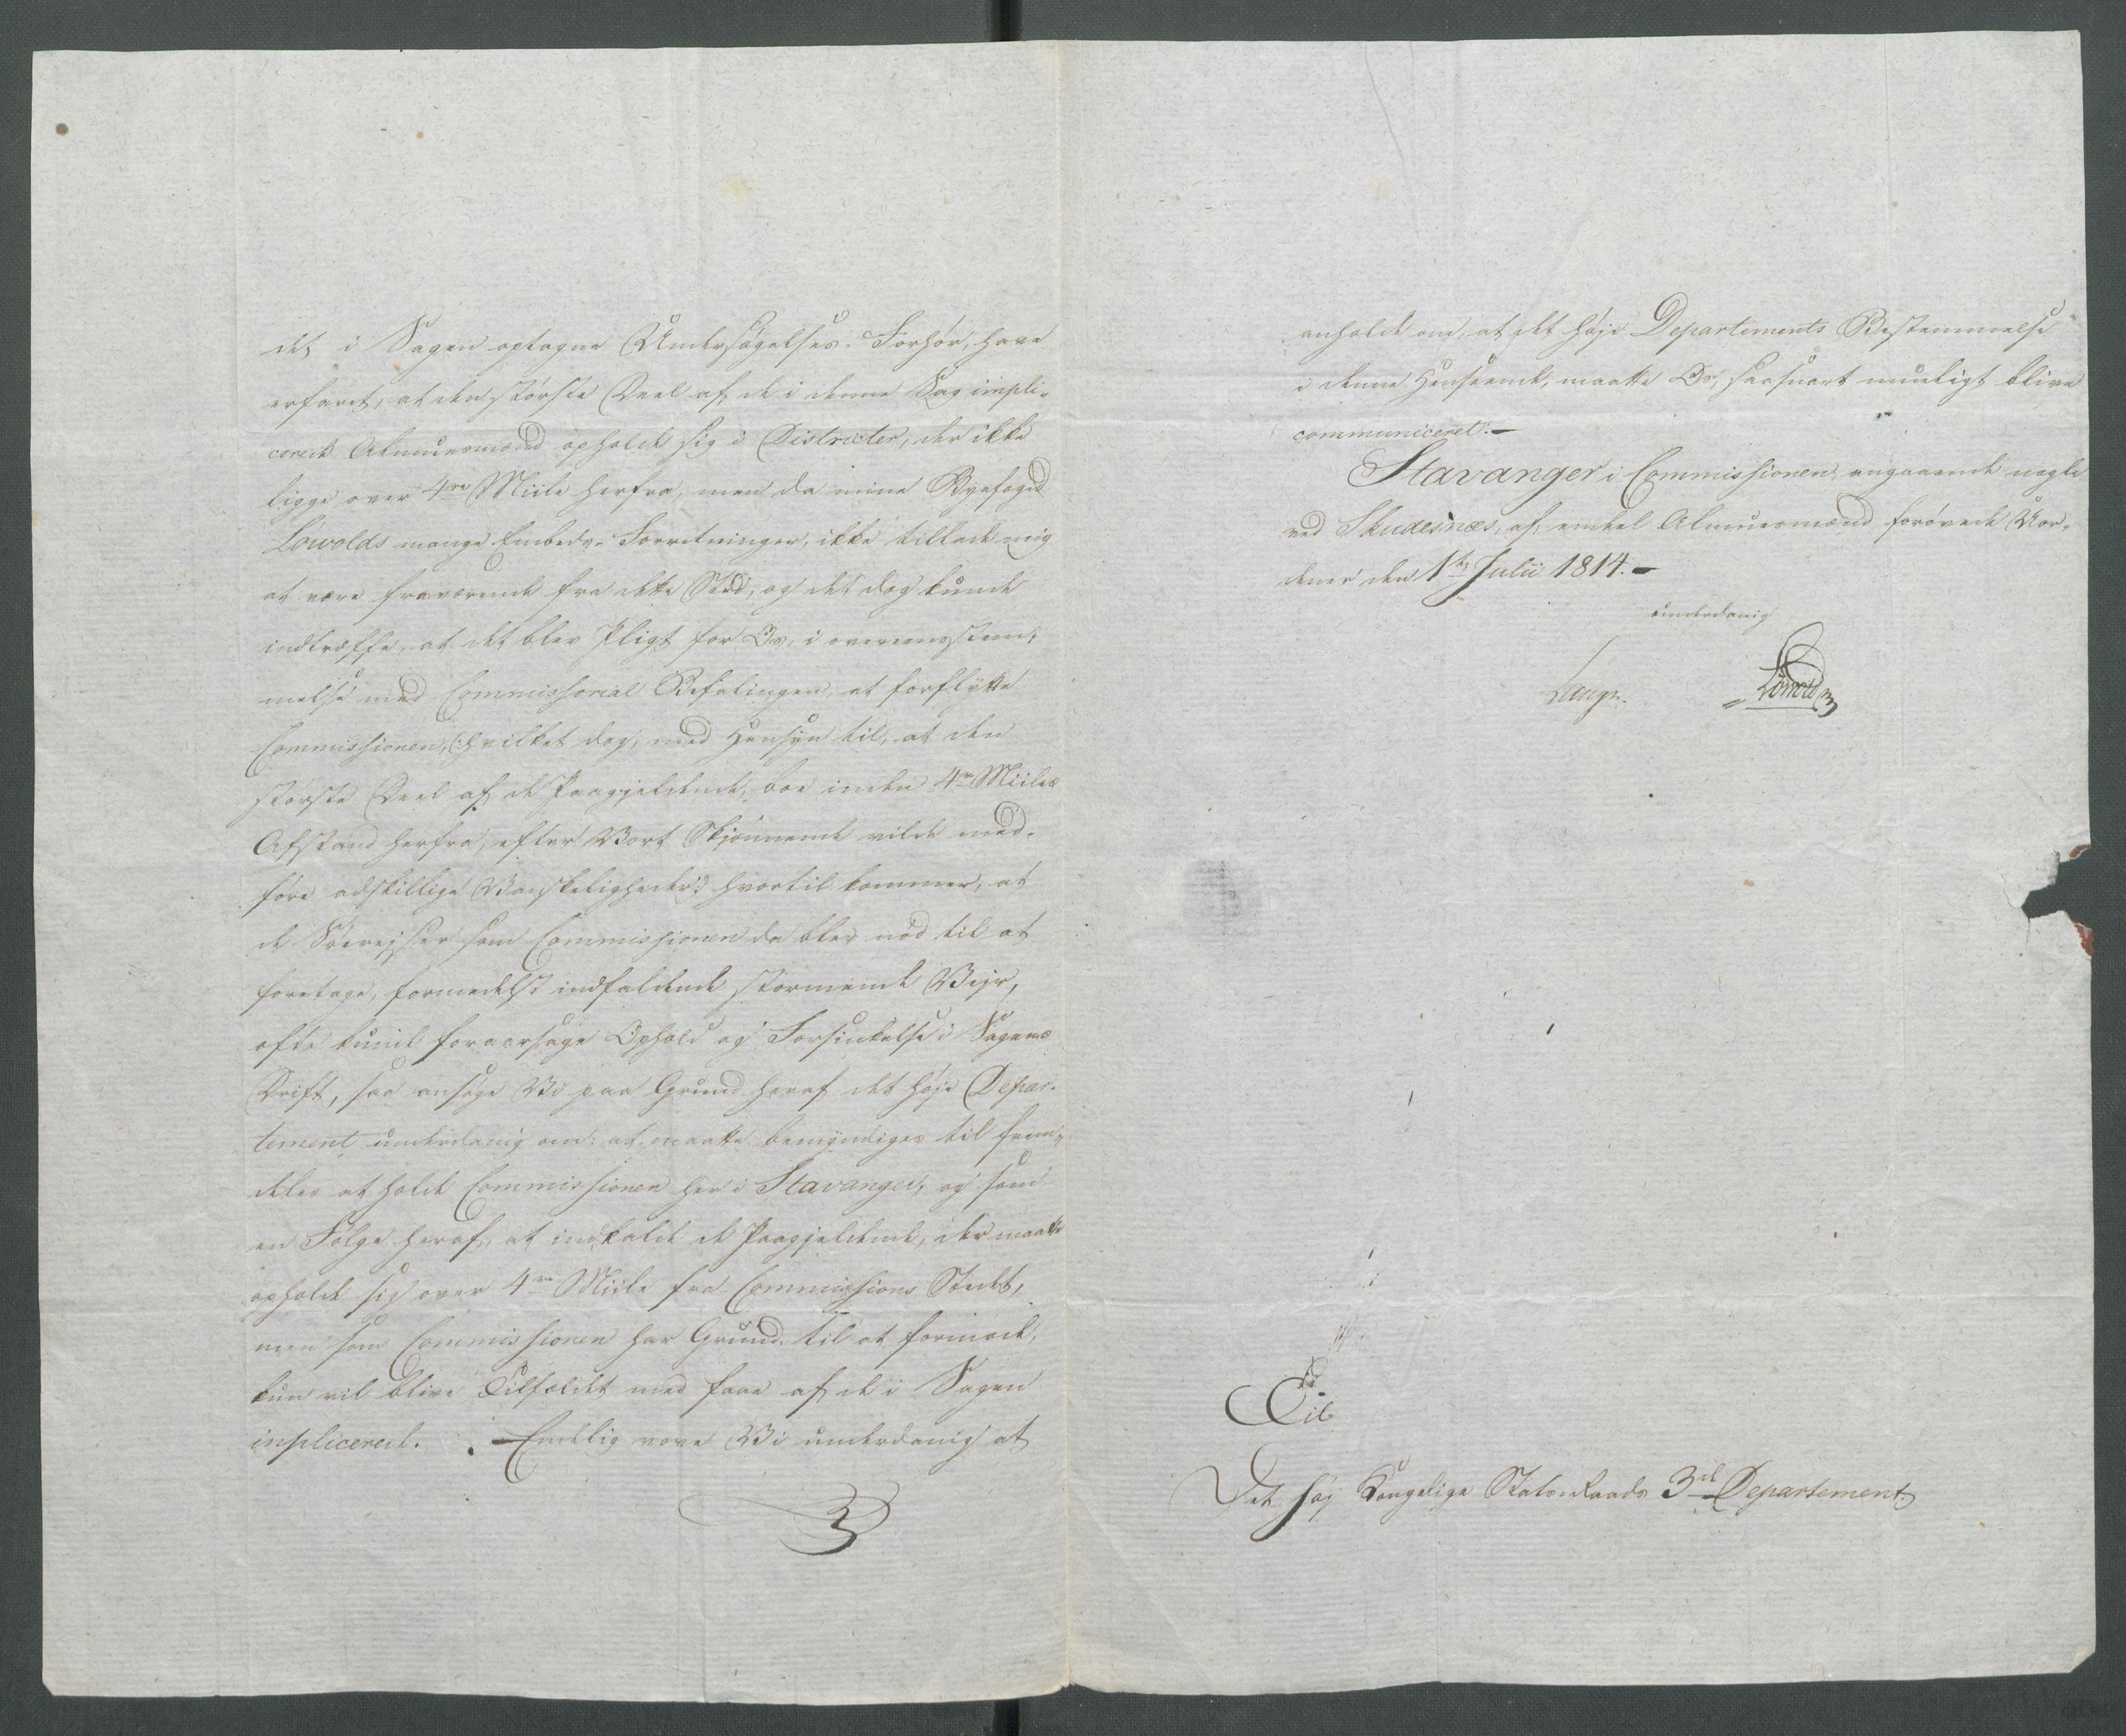 det i Sagen optagne Undersøgelses-Forhør, have
erfaret, at den største Deel af de i denne Sag impli-
cerede Almuesmænd opholde sig i Districter, der ikke
ligge over 4re Miile herfra, men da mine Byefoged
Löwolds mange Embeds-Forretninger, ikke tillade mig
at være fraværende fra dette Sted, og det dog kunde
indtræffe, at det blev Pligt for Os, i overeensstem-
melse med Commissorial Befalingen, at forflytte
Commissionen, (:hvilket dog, med Hensyn til, at den
største Deel af de Paagjeldende, boe inden 4re Miiles
Afstand herfra, efter Vort Skjønnende vilde med-
føre adskillige Vanskeligheder:) hvortil kommer, at
de Søerejser som Commissionen da blev nød til at
foretage, formedelst indfaldende stormende Vejr,
ofte kunde foraarsage Ophold og Forsinkelse i Sagens
Drift, saa ansøge Vi paa Grund heraf det høje Depar-
tement underdanig om: at maatte bemyndiges til frem-
deles at holde Commissionen her i Stavanger, og som
en Følge heraf, at indkalde de Paagjeldende, der maatte
opholde sig over 4re Miile fra Commissions Stedet,
men som Commissionen har Grund til at formode,
kun vil blive Tilfældet med faae af de i Sagen
inplicerede. Endelig vove Vi underdanig at
anholde om, at det høje Departements Bestemmelse
i denne Henseende, maatte Os, saasnart mueligt blive
communiceret.
Stavanger i Commissionen, angaaende nogle
ved Skudesnæs, af endel Almuesmænd forøvede Uor-
dener den 1te Julii 1814.
underdanig
Lange. Löwold
Til
Det høj Kongelige Stats-Raads 3die Departement.